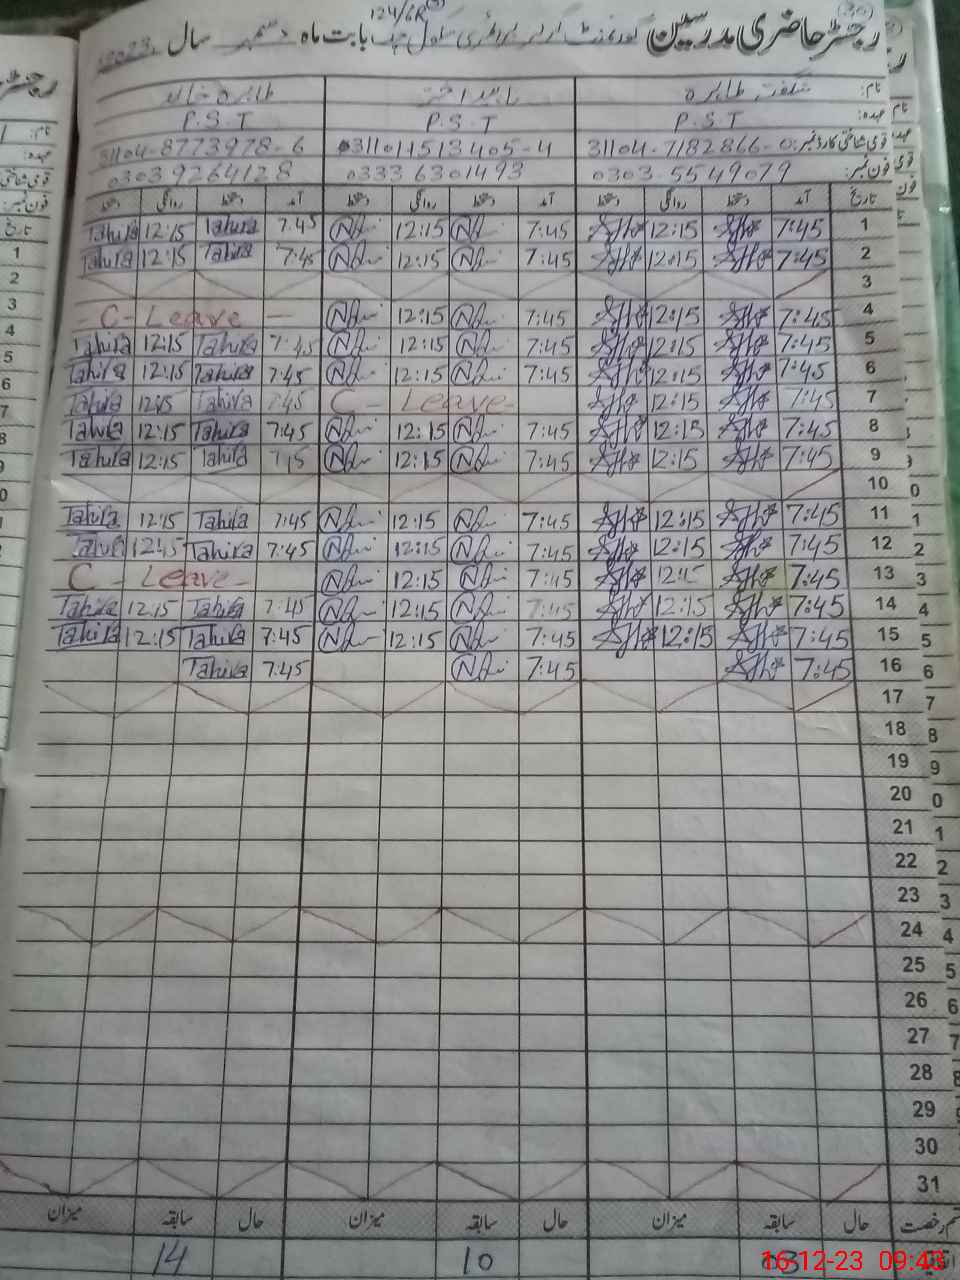 124/6R
رجسٹر حاضری مدرسین گورنمنٹ گرلز پرائمری سکول چک بابت ماہ دسمبر سال 2023
نام: شگفتہ طاہرہ طاہرہ خالد
عہدہ: P.S.T P.S.T P.S.T
قومی شناختی کارڈ نمبر: 31104-7182866-0 31101-1513405-4 31104-8773978-6
فون نمبر: 0303-5549079 0333 6301493 0303 9264128
تاریخ آمد دستخط روانگی دستخط آمد دستخط روانگی دستخط آمد دستخط روانگی دستخط
1 7:45 12:15 7:45 12:15 7:45 Tahira 12:15 Tahira
2 7:45 12:15 7:45 12:15 7:45 Tahira 12:15 Tahira
3
4 7:45 12:15 7:45 12:15 - C - Leave -
5 7:45 12:15 7:45 12:15 7:45 Tahira 12:15 Tahira
6 7:45 12:15 7:45 12:15 7:45 Tahira 12:15 Tahira
7 7:45 12:15 C - Leave - 7:45 Tahira 12:15 Tahira
8 7:45 12:15 7:45 12:15 7:45 Tahira 12:15 Tahira
9 7:45 12:15 7:45 12:15 Tahira 12:15 Tahira
10
11 7:45 12:15 7:45 12:15 7:45 Tahira 12:15 Tahira
12 7:45 12:15 7:45 12:15 7:45 Tahira 12:15
13 7:45 7:45 12:15 C - Leave -
14 7:45 12:15 7:45 12:15 7:45 Tahira 12:15 Tahira
15 7:45 12:15 7:45 12:15 7:45 Tahira 12:15 Tahira
16 7:45 7:45 7:45 Tahira
17
18
19
20
21
22
23
24
25
26
27
28
29
30
31
قسم رخصت حال سابقہ میزان حال سابقہ میزان حال سابقہ میزان
03 10 14
16-12-23 09:43